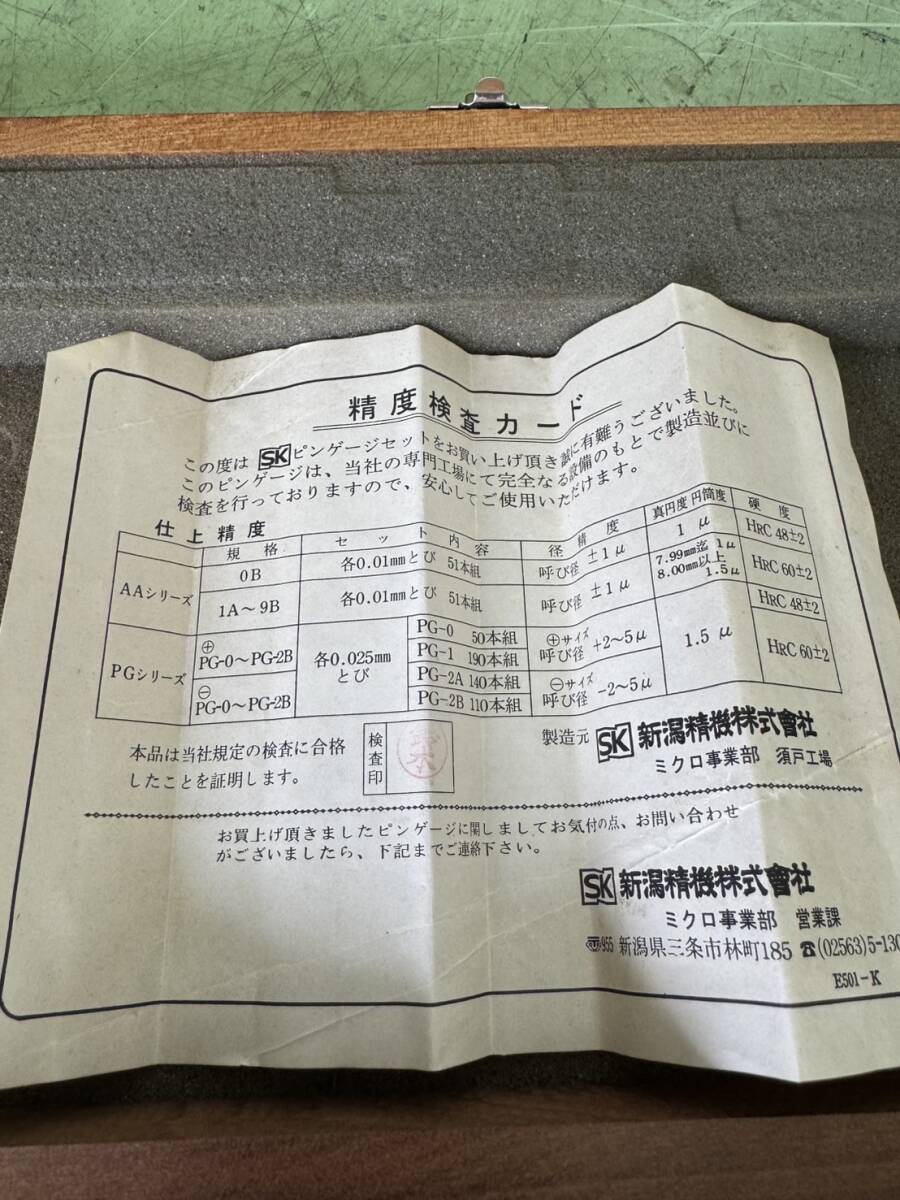 精度検査カード
この度は SK ピンゲージセットをお買い上げ頂き誠に有難うございました。
このピンゲージは、当社の専門工場にて完全なる設備のもとで製造並びに
検査を行っておりますので、安心してご使用いただけます。
仕上精度
規格 セット内容 径精度 真円度 円筒度 硬度
AAシリーズ 0B 各0.01mmとび 51本組 呼び径 ±1μ 1μ HRC 48±2
1A～9B 各0.01mmとび 51本組 呼び径 ±1μ 7.99mm迄 1μ 8.00mm以上 1.5μ HRC 60±2
PGシリーズ ⊕ PG-0～PG-2B 各0.025mmとび PG-0 50本組 ⊕サイズ 呼び径 +2～5μ 1.5μ HRC 48±2
PG-1 190本組 HRC 60±2
⊖ PG-0～PG-2B PG-2A 140本組 ⊖サイズ 呼び径 -2～5μ
PG-2B 110本組
本品は当社規定の検査に合格
したことを証明します。
検査印
製造元 SK 新潟精機株式會社
ミクロ事業部 須戸工場
お買上げ頂きましたピンゲージに関しましてお気付の点、お問い合わせ
がございましたら、下記までご連絡下さい。
SK 新潟精機株式會社
ミクロ事業部 営業課
〠955 新潟県三条市林町185 ☎(02563)5-130
E501-K